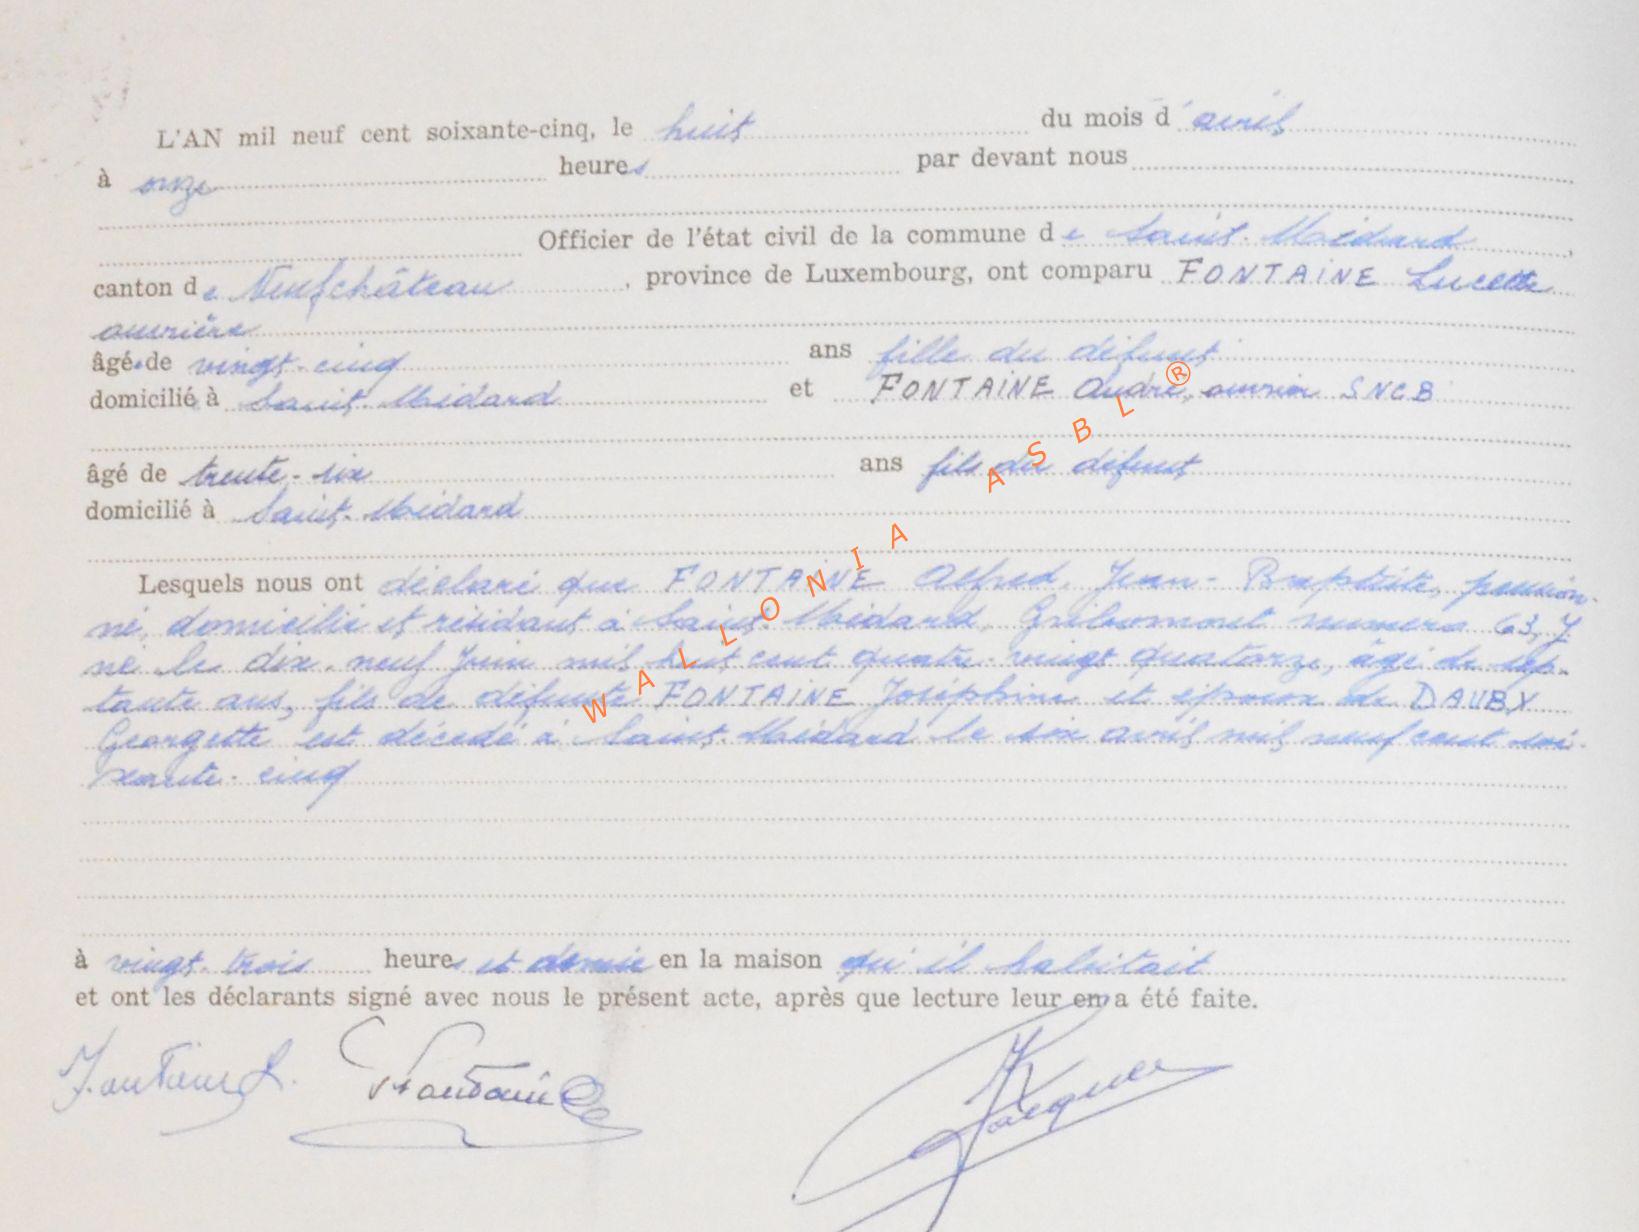 L'AN mil neuf cent soixante-cinq, le huit du mois d'avril
à onze heures par devant nous
Officier de l'état civil de la commune de Saint-Médard,
canton de Neufchâteau, province de Luxembourg, ont comparu FONTAINE Lucette
ouvrière
âgé.de vingt-cinq ans fille du défunt
domicilié à Saint-Médard et FONTAINE André, ouvrier SNCB
âgé de trente-six ans fils du défunt
domicilié à Saint-Médard
Lesquels nous ont déclaré que FONTAINE Alfred, Jean-Baptiste, pension-
né, domicilié et résidant à Saint-Médard, Gribomont numéro 63,
né le dix-neuf Juin mil huit cent quatre-vingt quatorze, âgé de sep-
tante ans, fils de défunte FONTAINE Joséphine et époux de DAUBY
Georgette est décédé à Saint-Médard le six avril mil neuf cent soi-
xante-cinq
à vingt-trois heures et demie en la maison qu'il habitait
et ont les déclarants signé avec nous le présent acte, après que lecture leur en a été faite.
Fontaine L. Fontaine Jacques
WALLONIA ASBL ®